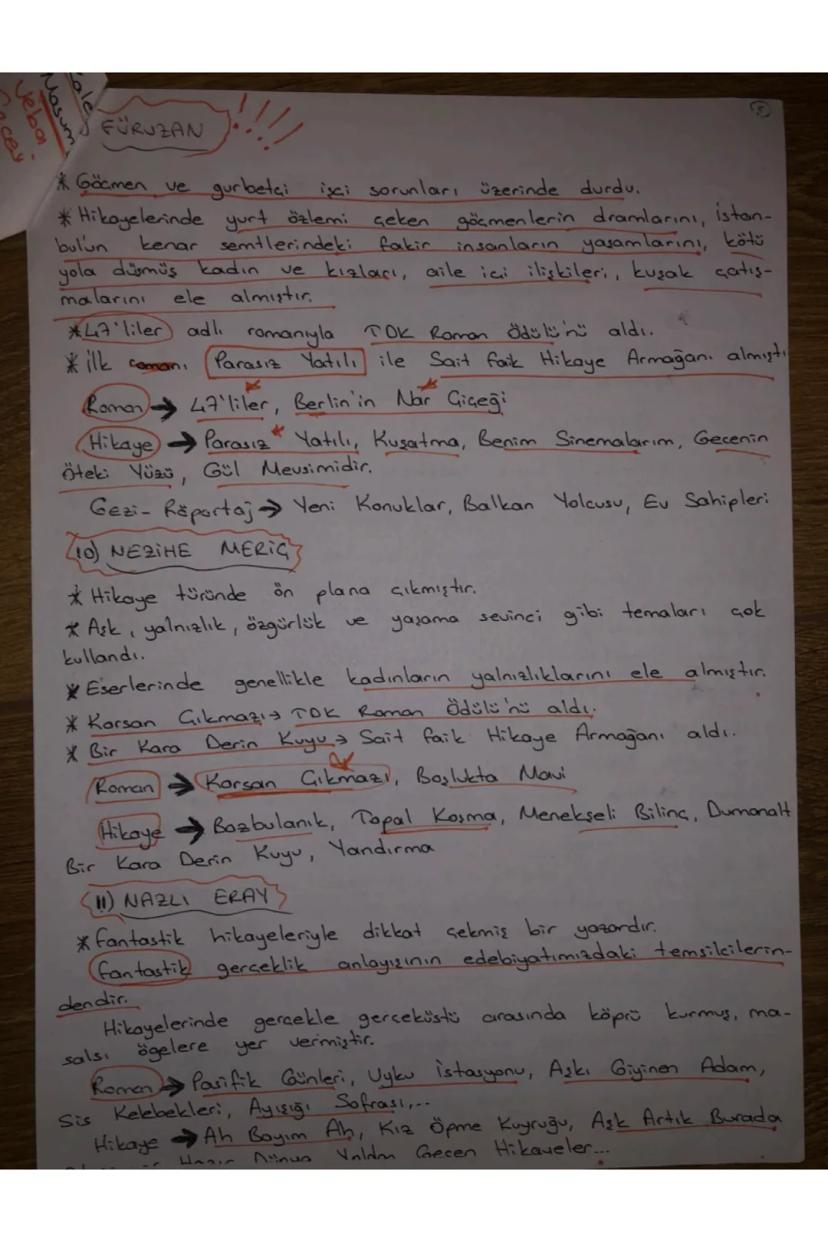 5
FÜRUZAN
* Göçmen ve gurbetçi işçi sorunları üzerinde durdu.
* Hikayelerinde yurt özlemi çeken göçmenlerin dramlarını, İstan-
bul'un kenar semtlerindeki fakir insanların yaşamlarını, kötü
yola düşmüş kadın ve kızları, aile içi ilişkileri, kuşak çatış-
malarını ele almıştır.
* 47'liler adlı romanıyla TDK Roman Ödülü'nü aldı.
* İlk romanı Parasız Yatılı ile Sait Faik Hikaye Armağanı almıştı
Roman → 47'liler, Berlin'in Nar Çiçeği
Hikaye → Parasız Yatılı, Kuşatma, Benim Sinemalarım, Gecenin
Öteki Yüzü, Gül Mevsimidir.
Gezi - Röportaj → Yeni Konuklar, Balkan Yolcusu, Ev Sahipleri
10) NEZİHE MERİÇ
* Hikaye türünde ön plana çıkmıştır.
* Aşk, yalnızlık, özgürlük ve yaşama sevinci gibi temaları çok
kullandı.
* Eserlerinde genellikle kadınların yalnızlıklarını ele almıştır.
* Korsan Çıkmazı → TDK Roman Ödülü'nü aldı.
* Bir Kara Derin Kuyu → Sait Faik Hikaye Armağanı aldı.
Roman → Korsan Çıkmazı, Boşlukta Mavi
Hikaye → Bozbulanık, Topal Koşma, Menekşeli Bilinç, Dumanalt
Bir Kara Derin Kuyu, Yandırma
11) NAZLI ERAY
* Fantastik hikayeleriyle dikkat çekmiş bir yazardır.
Fantastik gerçeklik anlayışının edebiyatımızdaki temsilcilerin-
dendir.
Hikayelerinde gerçekle gerçeküstü arasında köprü kurmuş, ma-
salsı ögelere yer vermiştir.
Roman → Pasifik Günleri, Uyku İstasyonu, Aşkı Giyinen Adam,
Sis Kelebekleri, Ayışığı Sofrası,...
Hikaye → Ah Bayım Ah, Kız Öpme Kuyruğu, Aşk Artık Burada
Hazır Dünya Yoldan Geçen Hikayeler...